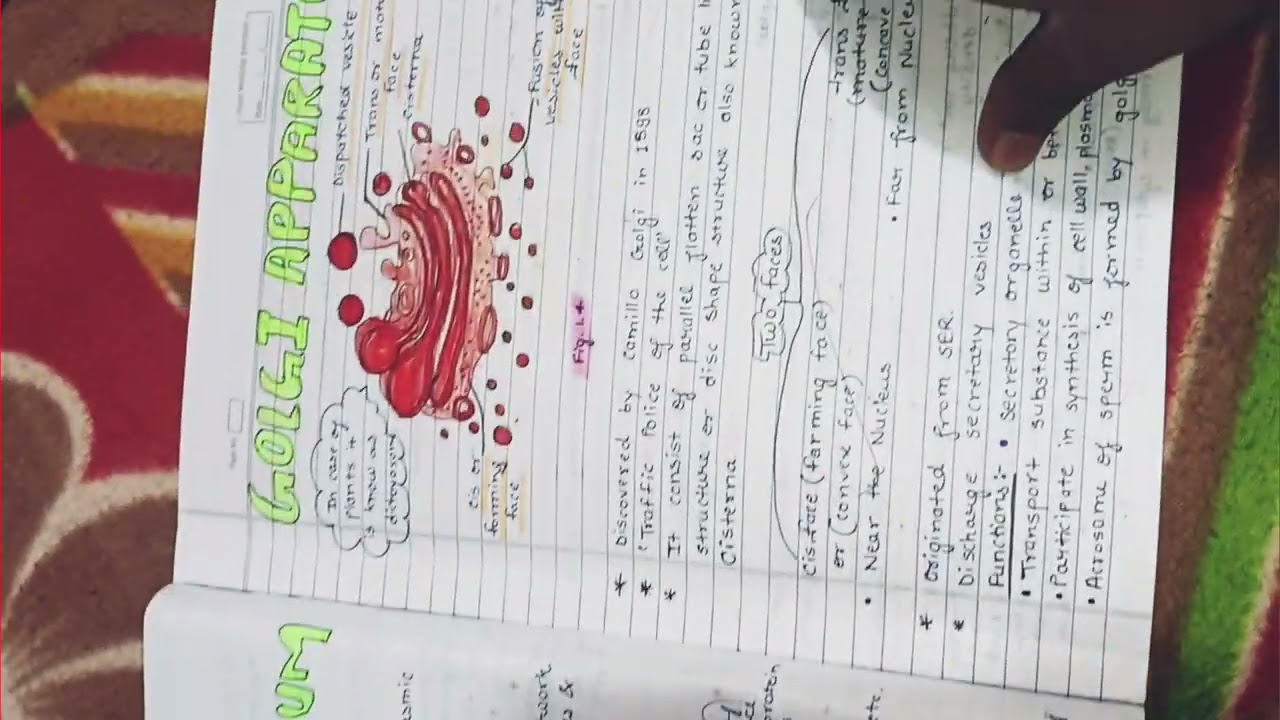 GOLGI APPARAT
In case of
Plants it
is know as
dictyosome
Dispatched vesicle
Trans or
face
cisterna
Fusion of
vesicles with
face
cis or
forming
face
Fig. 1.4
* Discovered by Camillo Golgi in 1898
* 'Traffic Police of the cell'
* It consist of parallel flatten sac or tube
structure or disc shape structure also known
Cisterna
Two faces
Cis.face (forming face)
or (convex face)
• Near the Nucleus
trans
(mature
(Concave
• Far from Nucleu
* Originated from SER.
* Discharge secretary vesicles
Functions:- • Secretory organelle
• Transport substance within or
• Participate in synthesis of cell wall, plasm
• Acrosome of sperm is formed by golg
UM
smic
work
&
of
protein
etc.